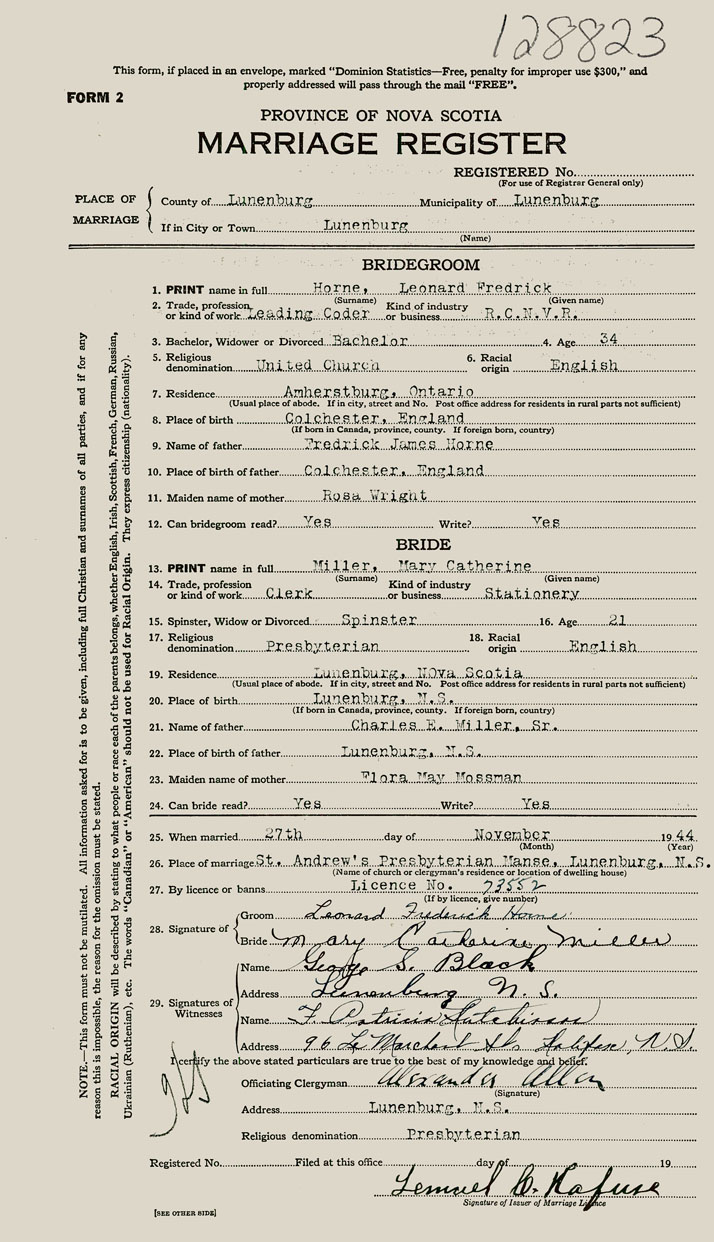 128823
This form, if placed in an envelope, marked "Dominion Statistics—Free, penalty for improper use $300," and
properly addressed will pass through the mail "FREE".
FORM 2
PROVINCE OF NOVA SCOTIA
MARRIAGE REGISTER
REGISTERED No.
(For use of Registrar General only)
PLACE OF MARRIAGE
County of Lunenburg Municipality of Lunenburg
If in City or Town Lunenburg
(Name)
BRIDEGROOM
1. PRINT name in full Horne, Leonard Fredrick
(Surname) (Given name)
2. Trade, profession or kind of work Leading Coder Kind of industry or business R.C.N.V.R.
3. Bachelor, Widower or Divorced Bachelor 4. Age 34
5. Religious denomination United Church 6. Racial origin English
7. Residence Amherstburg, Ontario
(Usual place of abode. If in city, street and No. Post office address for residents in rural parts not sufficient)
8. Place of birth Colchester, England
(If born in Canada, province, county. If foreign born, country)
9. Name of father Fredrick James Horne
10. Place of birth of father Colchester, England
11. Maiden name of mother Rosa Wright
12. Can bridegroom read? Yes Write? Yes
BRIDE
13. PRINT name in full Miller, Mary Catherine
(Surname) (Given name)
14. Trade, profession or kind of work Clerk Kind of industry or business Stationery
15. Spinster, Widow or Divorced Spinster 16. Age 21
17. Religious denomination Presbyterian 18. Racial origin English
19. Residence Lunenburg, NOva Scotia
(Usual place of abode. If in city, street and No. Post office address for residents in rural parts not sufficient)
20. Place of birth Lunenburg, N.S.
(If born in Canada, province, county. If foreign born, country)
21. Name of father Charles E. Miller, Sr.
22. Place of birth of father Lunenburg, N.S.
23. Maiden name of mother Flora May Mossman
24. Can bride read? Yes Write? Yes
25. When married 27th day of November 19 44
(Month) (Year)
26. Place of marriage St. Andrew's Presbyterian Manse, Lunenburg, N.S.
(Name of church or clergyman's residence or location of dwelling house)
27. By licence or banns Licence No. 73552
(If by licence, give number)
28. Signature of Groom Leonard Frederick Horne
Bride Mary Catherine Miller
29. Signatures of Witnesses
Name George S. Black
Address Lunenburg N. S.
Name F. Patricia Hutchinson
Address 96 Le Marchant St. Halifax, N.S.
I certify the above stated particulars are true to the best of my knowledge and belief.
Officiating Clergyman Alexander Allen
(Signature)
Address Lunenburg, N.S.
Religious denomination Presbyterian
Registered No. Filed at this office day of 19
Lemuel C. Hafuse
Signature of Issuer of Marriage Licence
[SEE OTHER SIDE]
NOTE.—This form must not be mutilated. All information asked for is to be given, including full Christian and surnames of all parties, and if for any
reason this is impossible, the reason for the omission must be stated.
RACIAL ORIGIN will be described by stating to what people or race each of the parents belongs, whether English, Irish, Scottish, French, German, Russian,
Ukrainian (Ruthenian), etc. The words "Canadian" or "American" should not be used for Racial Origin. They express citizenship (nationality).